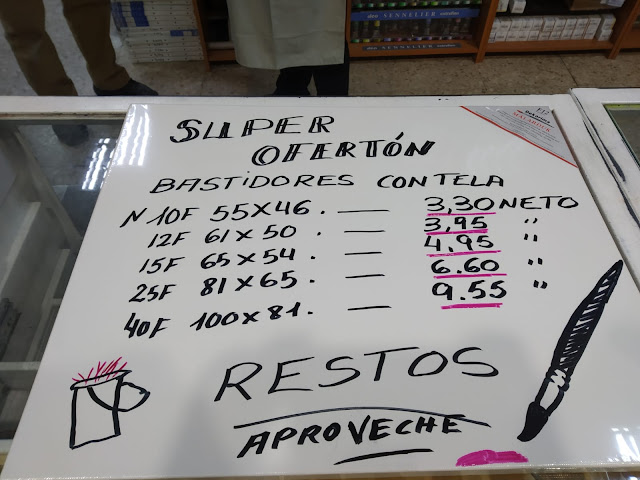 SENNELIER
SUPER
OFERTÓN
BASTIDORES CON TELA
N 10F 55X46. — 3,30 NETO
12F 61X50 — 3,95 "
15F 65X54. — 4.95 "
25F 81X65. — 6.60 "
40F 100X81. — 9.55 "
RESTOS
APROVECHE